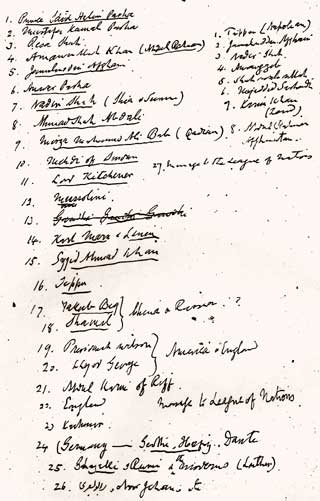 1. Prince Said Halim Pasha
2. Mustafa Kamal Pasha
3. Reza Shah
4. Amanullah Khan
5. Jamaluddin Afghani
6. Anwar Pasha
7. Nadir Shah (Shia & Sunni)
8. Ahmad Shah Abdali
9. Mirza Mohammad Ali Bab (Qadian)
10. Mehdi of Sudan
11. Lord Kitchener
12. Mussolini
13. Gandhi
14. Karl Marx & Lenin
15. Syed Ahmad Khan
16. Tippu
17. Yakub Beg
18. Shamil
China & Russia ?
19. President Wilson
20. Lloyd George
America & England
21. Abdul Karim of Riff
22. England
message to League of Nations
23. Kashmir
24. Germany — Goethe, Hegel, Dante
25. Ghazali & Rumi & (Luther)
26.
1. Tippu (Napoleon)
2. Jamaluddin Afghani
3. Nadir Shah
4. Aurangzeb
5. Shah Waliullah
6. Mujaddid Sarhindi
7. Karim Khan
(Zand)
8. Abdul Rahman
Afghanistan
27. message to the League of Nations